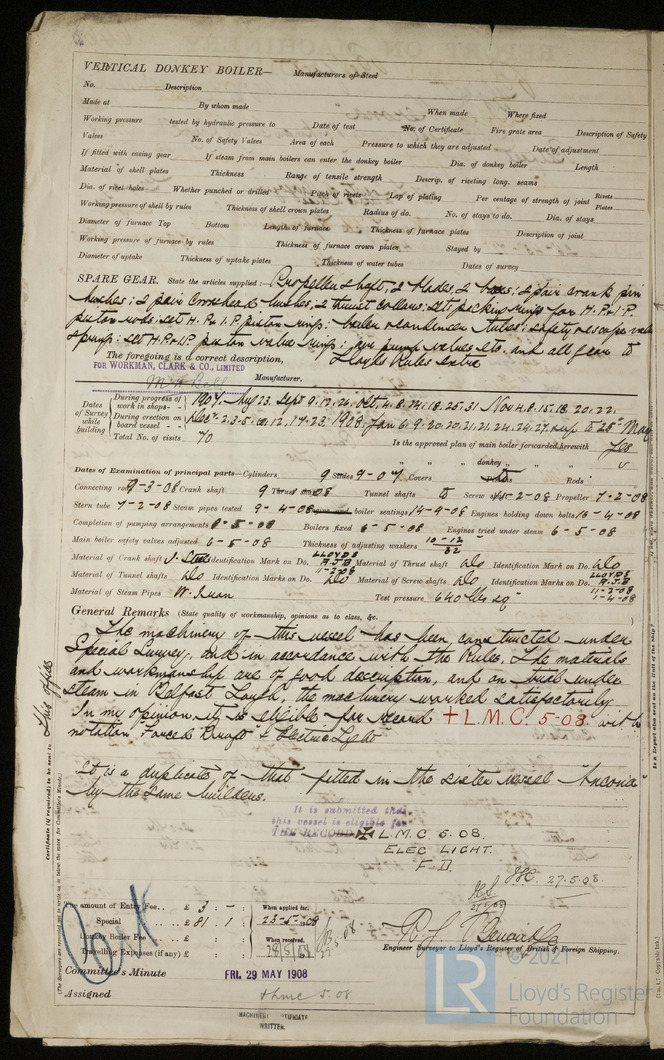 VERTICAL DONKEY BOILER— Manufacturers of Steel
No. Description
Made at By whom made When made Where fixed
Working pressure tested by hydraulic pressure to Date of test No. of Certificate Fire grate area Description of Safety
Valves No. of Safety Valves Area of each Pressure to which they are adjusted Date of adjustment
If fitted with easing gear If steam from main boilers can enter the donkey boiler Dia. of donkey boiler Length
Material of shell plates Thickness Range of tensile strength Descrip. of riveting long. seams
Dia. of rivet holes Whether punched or drilled Pitch of rivets Lap of plating Per centage of strength of joint Rivets Plates
Working pressure of shell by rules Thickness of shell crown plates Radius of do. No. of stays to do. Dia. of stays
Diameter of furnace Top Bottom Length of furnace Thickness of furnace plates Description of joint
Working pressure of furnace by rules Thickness of furnace crown plates Stayed by
Diameter of uptake Thickness of uptake plates Thickness of water tubes Dates of survey
SPARE GEAR. State the articles supplied:— Propeller shaft, 2 blades, 2 : 2 pair crank pin
bushes: 2 pair crosshead bushes, 2 thrust collars: set packing rings for H.P. & I.P.
piston rods: set H.P. & I.P. piston rings: boiler & condenser tubes: safety & escape valve
springs: set H.P. & I.P. piston valve rings: pump valves etc. and all gear to
The foregoing is a correct description, Lloyds Rules extra
FOR WORKMAN, CLARK & CO., LIMITED
Manufacturer.
Dates of Survey while building
During progress of work in shops - - 1907. Aug 23. Sept 9. 12. 26. Oct. 4. 8. 14. 18. 25. 31 Nov 4. 8. 15. 18. 20. 22.
During erection on board vessel - - Dec. 2. 3. 5. 10. 12. 17. 23. 1908. Jan 6. 9. 20. 20. 21. 21. 24. 24. 27. & up to 25th May
Total No. of visits 70
Is the approved plan of main boiler forwarded herewith Yes
" " " donkey " " "
Dates of Examination of principal parts—Cylinders 9 Slides 9-07 Covers Rods
Connecting rods 9-3-08 Crank shaft 9 Thrust Tunnel shafts to Screw shaft 2-08 Propeller 7-2-08
Stern tube 7-2-08 Steam pipes tested 9-4-08 boiler seatings 14-4-08 Engines holding down bolts 13-4-08
Completion of pumping arrangements 8-5-08 Boilers fixed 6-5-08 Engines tried under steam 6-5-08
Main boiler safety valves adjusted 6-5-08 Thickness of adjusting washers 10-12 / 32
Material of Crank shaft I. Steel Identification Mark on Do. LLOYDS A.J.B Material of Thrust shaft do Identification Mark on Do. do
Material of Tunnel shafts do Identification Marks on Do. do Material of Screw shafts do Identification Marks on Do. LLOYDS A.J.B 11-2-08 1-4-08
Material of Steam Pipes W. Iron Test pressure 640 lbs sq"
General Remarks (State quality of workmanship, opinions as to class, &c.
The machinery of this vessel has been constructed under
Special Survey, and in accordance with the Rules. The materials
and workmanship are of good description, and on trial under
steam in Belfast Lough, the machinery worked satisfactorily
In my opinion it is eligible for record + L.M.C. 5-08. with
notation Forced Draft & Electric Light
It is a duplicate of that fitted in the sister vessel "Ancona"
by the same builders.
It is submitted that
this vessel is eligible for
THE RECORD + L.M.C. 5.08.
ELEC LIGHT.
F.D.
27.5.08
The amount of Entry Fee.. £ 3 . - : When applied for,
Special .. £ 81 . 1 : 23-5-1908
Donkey Boiler Fee .. £ : : When received,
Travelling Expenses (if any) £ : : 28/5/08
Engineer Surveyor to Lloyd's Register of British & Foreign Shipping.
Committee's Minute FRI. 29 MAY 1908
Assigned + LMC 5.08
MACHINERY CERTIFICATE
WRITTEN.
Certificate (if required) to be sent to This office
(The Surveyors are requested not to write on or below the space for Committee's Minute.)
© 2021
LR
Lloyd's Register
Foundation